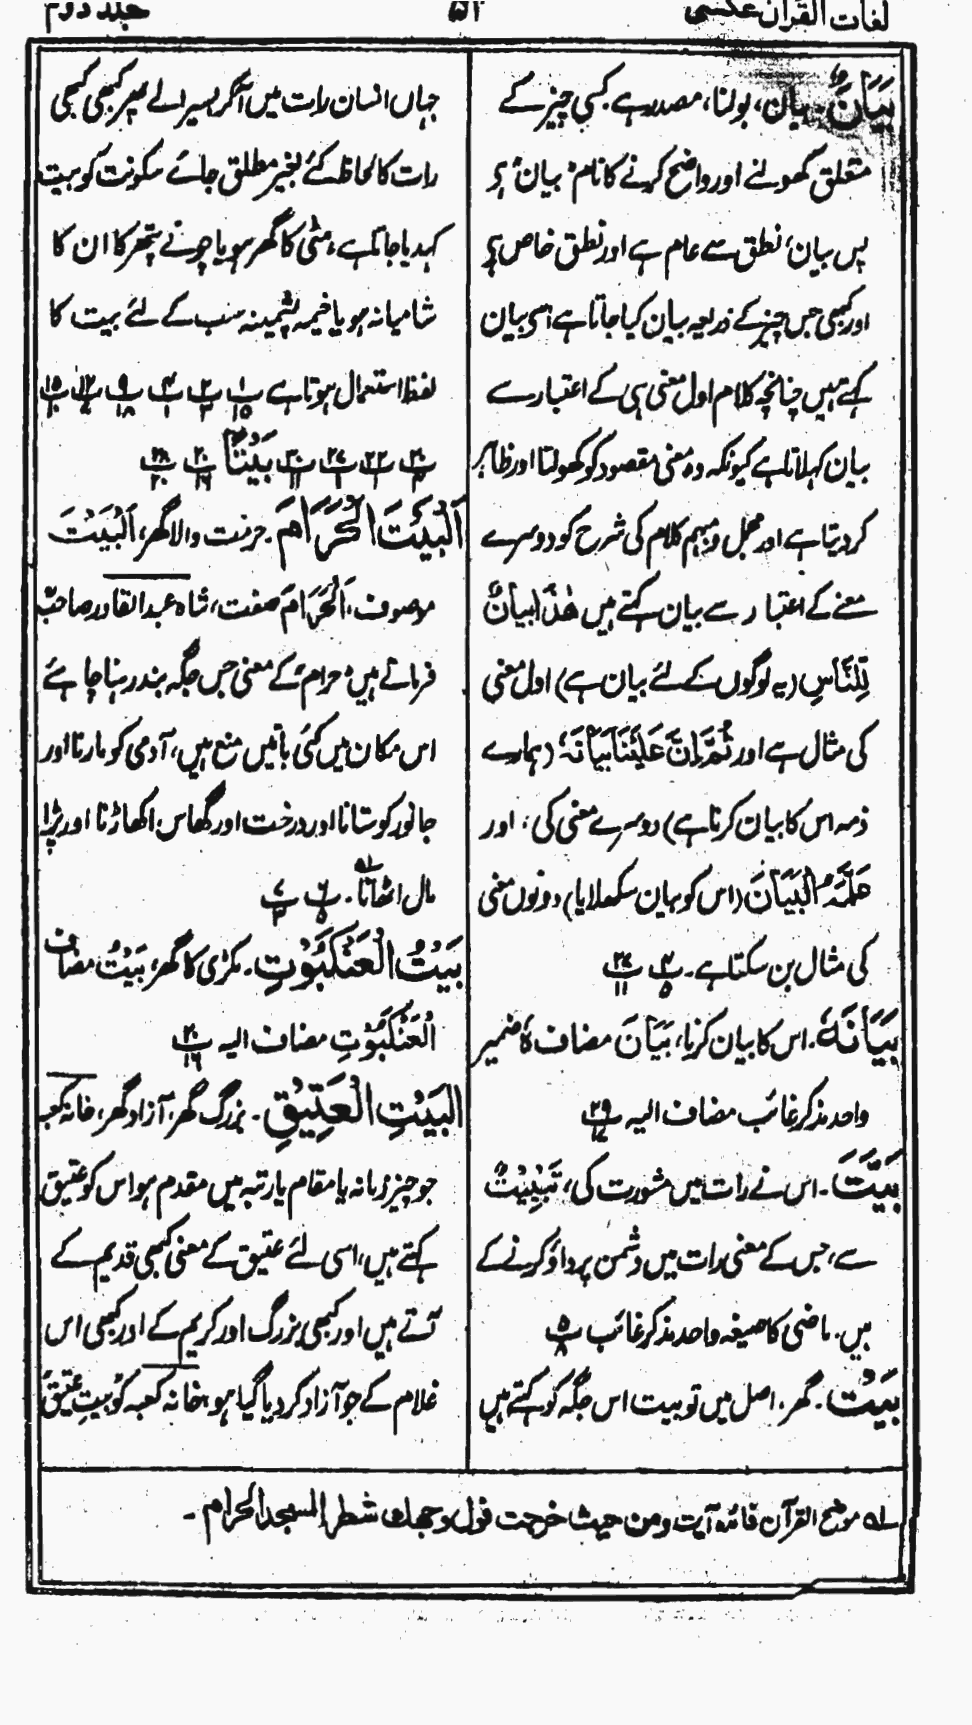 لغات القرآن عکسی
۵۲
جلد دوم
بَیَانٌ۔ بیان، بولنا، مصدر ہے کسی چیز کے
متعلق کھولنے اور واضح کرنے کا نام "بیان" ہے
پس بیان، نطق سے عام ہے اور نطق خاص ہے
اور کبھی جس چیز کے ذریعہ بیان کیا جاتا ہے اسی بیان
کہتے ہیں چنانچہ کلام اول معنی ہی کے اعتبار سے
بیان کہلاتا ہے کیونکہ وہ معنی مقصود کو کھولتا اور ظاہر
کر دیتا ہے اور مجمل و مبہم کلام کی شرح کو دوسرے
معنے کے اعتبار سے بیان کہتے ہیں ھٰذَا بَیَانٌ
لِّلنَّاسِ (یہ لوگوں کے لئے بیان ہے) اول معنی
کی مثال ہے اور ثُمَّ اِنَّ عَلَیْنَا بَیَانَہٗ (ہمارے
ذمہ اس کا بیان کرنا ہے) دوسرے معنی کی، اور
عَلَّمَہُ الْبَیَانَ (اس کو بیان سکھلایا) دونوں معنی
کی مثال بن سکتا ہے۔ پ۴ ۵ پ۲۷ ۱۱
بَیَانَہٗ۔ اس کا بیان کرنا، بَیَانَ مضاف ہٗ ضمیر
واحد مذکر غائب مضاف الیہ پ۲۹ ۱۷
بَیَّتَ۔ اس نے رات میں مشورت کی، تَبْیِیْتٌ
سے، جس کے معنی رات میں دشمن پر داؤ کرنے کے
ہیں۔ ماضی کا صیغہ واحد مذکر غائب پ۵ ۸
بَیْتٌ۔ گھر، اصل میں تو بیت اس جگہ کو کہتے ہیں
جہاں انسان رات میں آکر بسیرا لے پھر کبھی کبھی
رات کا لحاظ کئے بغیر مطلق جائے سکونت کو بیت
کہدیا جاتا ہے، مٹی کا گھر ہو یا چونے پتھر کا ان کا
شامیانہ ہو یا خیمہ پشمینہ سب کے لئے بیت کا
لفظ استعمال ہوتا ہے پ۱ ۱۵ پ۲ پ۴ ۱ پ۹ ۱۸ پ۱۲ پ۱۵ ۱۰
پ۲۰ پ۲۲ ۱ پ۲۷ ۱ پ۳۰ ۱۱ بَیْتًا پ۲۰ ۱۶ پ۲۸ ۲۰
اَلْبَیْتَ الْحَرَامَ۔ حرمت والا گھر، اَلْبَیْتَ
موصوف، اَلْحَرَامَ صفت، شاہ عبد القادر صاحبؒ
فرماتے ہیں "حرام" کے معنی جس جگہ بندر ہنا چاہئے
اس مکان میں کئی باتیں منع ہیں، آدمی کو مارنا اور
جانور کو ستانا اور درخت اور گھاس اکھاڑنا اور پڑا
مال اٹھانا۔ پ۶ ۵ پ۷ ۳
بَیْتُ الْعَنْکَبُوْتِ۔ مکڑی کا گھر، بَیْتُ مضاف
الْعَنْکَبُوْتِ مضاف الیہ پ۲۰ ۱۶
الْبَیْتِ الْعَتِیْقِ۔ بزرگ گھر، آزاد گھر، خانہ کعبہ
جو چیز زمانہ یا مقام یا رتبہ میں مقدم ہو اس کو عتیق
کہتے ہیں، اسی لئے عتیق کے معنی کبھی قدیم کے
آتے ہیں اور کبھی بزرگ اور کریم کے اور کبھی اس
غلام کے جو آزاد کر دیا گیا ہو، خانہ کعبہ کو بیتِ عتیق
لہ موضح القرآن فائدہ آیت ومن حیث خرجت فول وجھک شطر المسجد الحرام۔